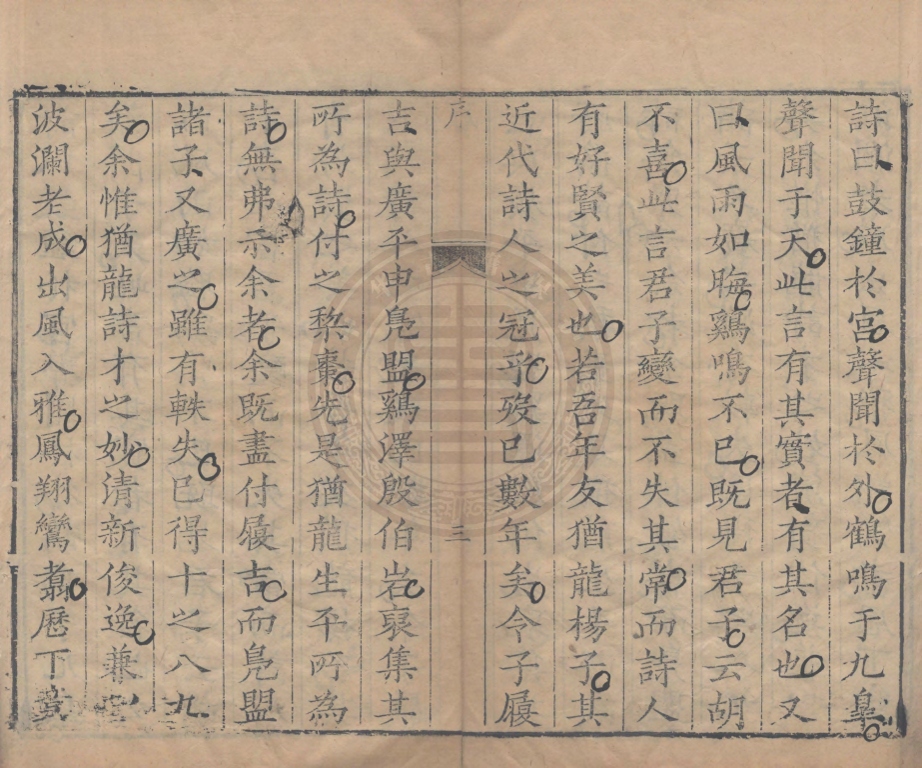 詩曰鼓鐘於宮聲聞於外鶴鳴于九臯
聲聞于天此言有其實者有其名也又
曰風雨如晦鷄鳴不已既見君子云胡
不喜此言君子變而不失其常而詩人
有好賢之美也若吾年友猶龍楊子其
近代詩人之冠乎歿已數年矣今子履
序
三
吉與廣平申鳧盟鷄澤殷伯岩裒集其
所為詩付之棃棗先是猶龍生平所為
詩無弗示余者余既盡付履吉而鳧盟
諸子又廣之雖有軼失已得十之八九
矣余惟猶龍詩才之妙清新俊逸兼以
波瀾老成出風入雅鳳翔鸞翥歷下竟